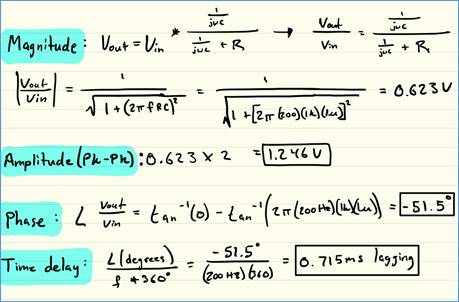 Magnitude: Vout = Vin * (1/jωc)/(1/jωc + R₁) → Vout/Vin = (1/jωc)/(1/jωc + R₁)
|Vout/Vin| = 1/√(1+(2πfRC)²) = 1/√(1+[2π(200)(1k)(1u)]²) = 0.623V
Amplitude (Pk-Pk): 0.623 x 2 = 1.246 V
Phase: ∠ Vout/Vin = tan⁻¹(0) - tan⁻¹(2π(200Hz)(1k)(1u)) = -51.5°
Time delay: ∠(degrees)/(f * 360°) = -51.5°/((200 Hz)(360)) = 0.715ms lagging